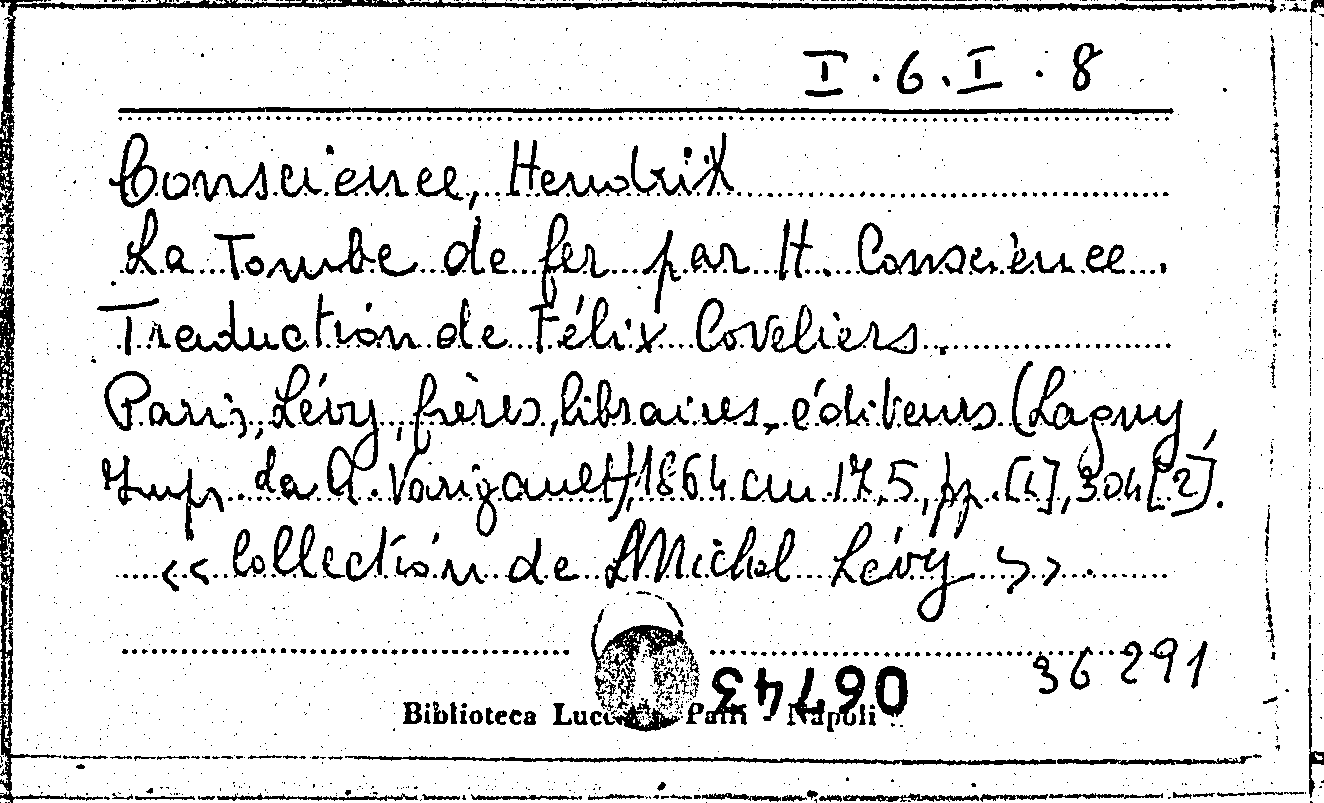 I.6.I.8
Conscience, Hendrik
La Tombe de fer par H. Conscience.
Traduction de Félix Coveliers.
Paris, Lévy, frères, libraires, éditeurs (Lagny,
Imp. da A. Varigault), 1864 cm 17,5, pp. [1], 304 [2].
<< Collection de Michel Lévy >>.
36291
06743
Biblioteca Patri - Napoli